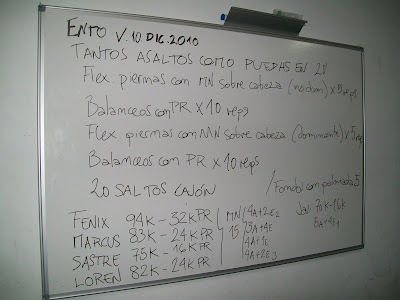 ENTO V.10 DIC.2010
TANTOS ASALTOS COMO PUEDAS EN 20
Flex piernas con MN sobre cabeza (no dom) x 5 reps
Balanceos con PR x 10 reps
Flex piernas con MN sobre cabeza (dominante) x 5 reps
Balanceos con PR x 10 reps
20 SALTOS CAJÓN
FENIX 94K - 32K PR / MN / 4A+2E2
MARCUS 83K - 24K PR / 15 / 3A+4E
SASTRE 75K - 16K PR / 4A+1E
LOREN 82K - 24K PR 4A+2E
70K-16K